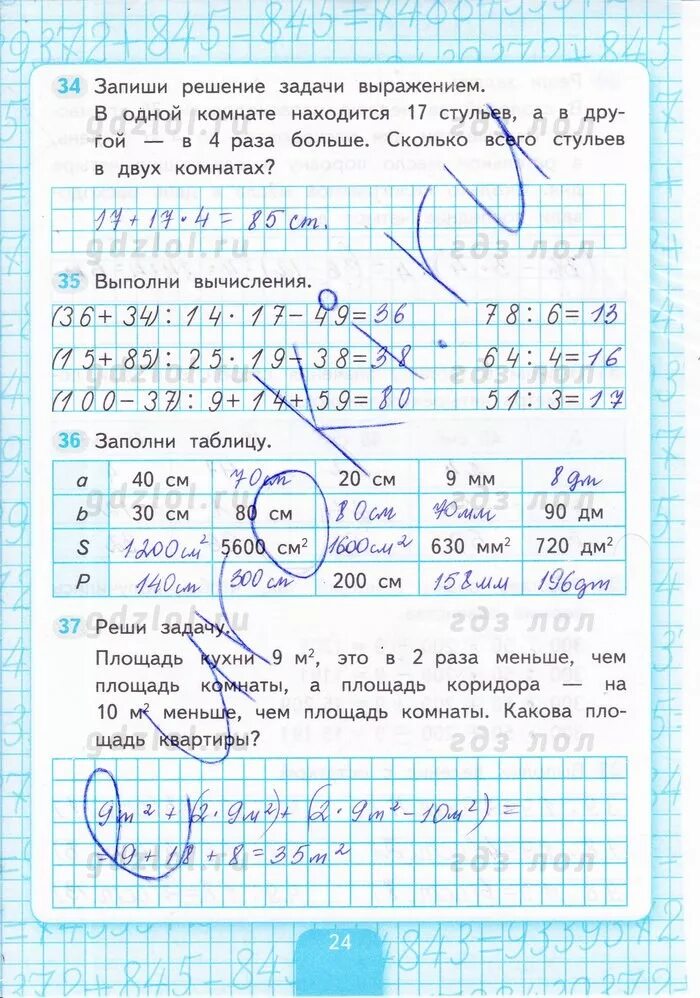 34 Запиши решение задачи выражением.
В одной комнате находится 17 стульев, а в дру-
гой — в 4 раза больше. Сколько всего стульев
в двух комнатах?
gdzlol.ru гдз лол
17 + 17 · 4 = 85 ст.
35 Выполни вычисления.
(36 + 34) : 14 · 17 − 49 = 36 78 : 6 = 13
(15 + 85) : 25 · 19 − 38 = 38 64 : 4 = 16
(100 − 37) : 9 + 14 + 59 = 80 51 : 3 = 17
36 Заполни таблицу.
a 40 см 70 см 20 см 9 мм 8 дм
b 30 см 80 см 80 см 70 мм 90 дм
S 1200 см² 5600 см² 1600 см² 630 мм² 720 дм²
P 140 см 300 см 200 см 158 мм 196 дм
37 Реши задачу.
Площадь кухни 9 м², это в 2 раза меньше, чем
площадь комнаты, а площадь коридора — на
10 м² меньше, чем площадь комнаты. Какова пло-
щадь квартиры?
9 м² + (2 · 9 м²) + (2 · 9 м² − 10 м²) =
= 9 + 18 + 8 = 35 м²
24